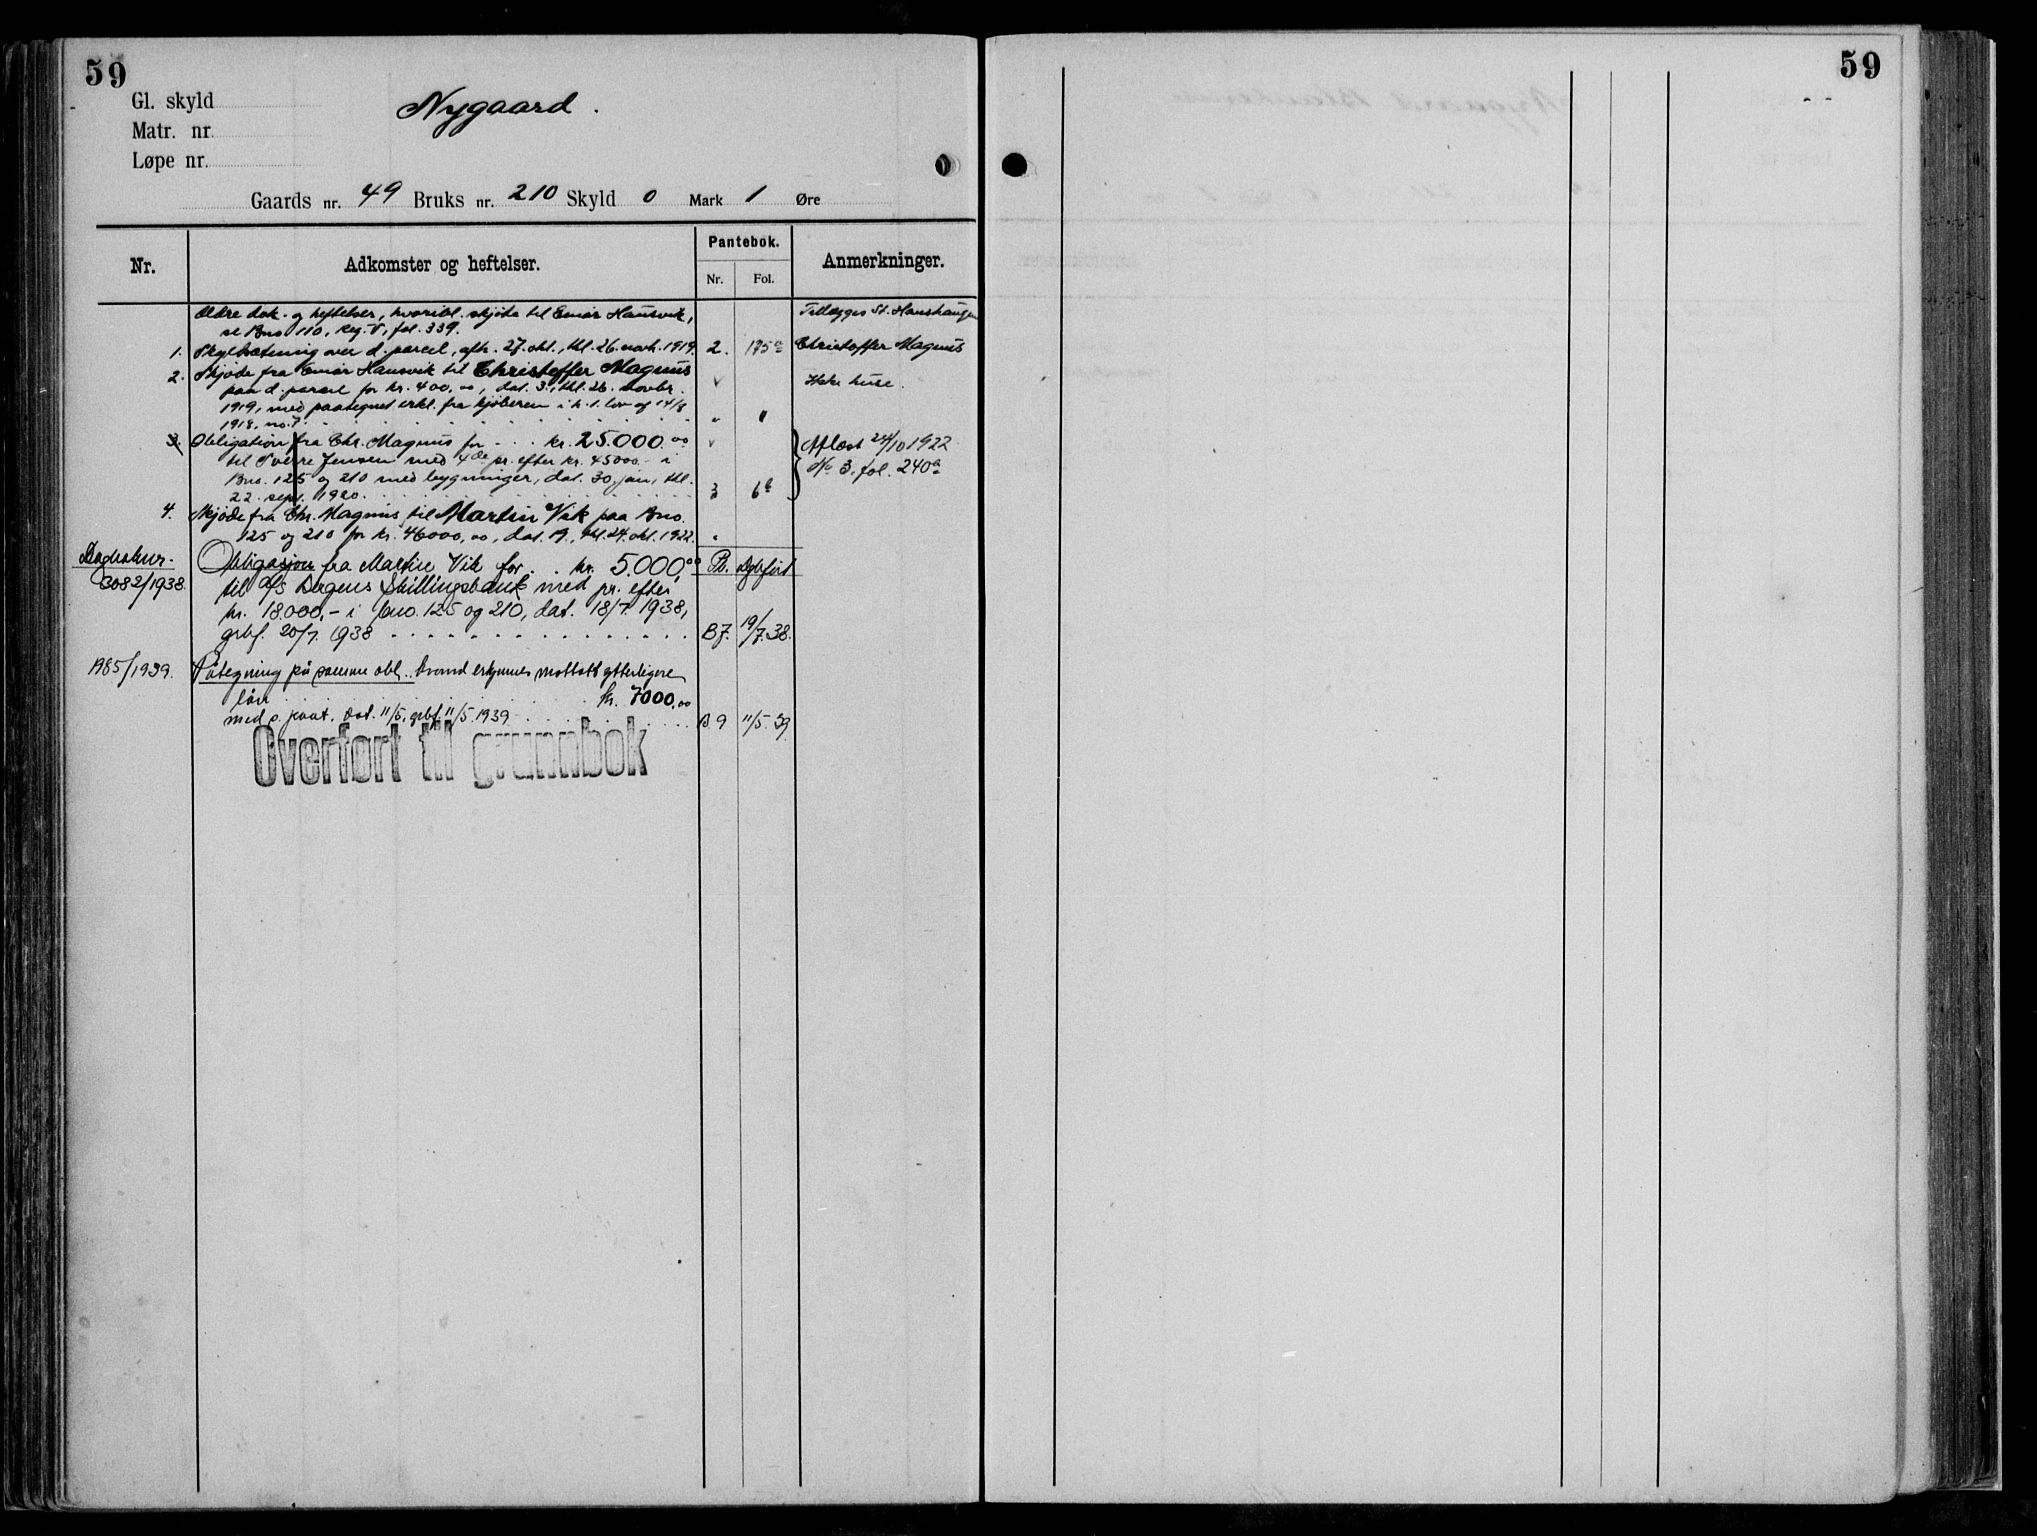 59
Gl. skyld
Nygaard.
Matr. nr.
Løpe nr.
Gaards nr. 49 Bruks nr. 210 Skyld 0 Mark 1 Øre
Nr.
Adkomster og heftelser.
Pantebok.
Nr. Fol.
Anmerkninger.
Ældre dok. og heftelser, hvoribl. skjøte til Einar Hansvik,
se Bno 110, reg. V, fol. 339.
Tillægges St. Hanshaugen
1. Skyldsætning over d. parcel, afh. 27. okt., thl. 26. novb. 1919. 2. 175a
Christoffer Magnus
2. Skjøde fra Einar Hansvik til Christoffer Magnus
paa d. parcel for kr. 400,00, dat. 3., thl. 26. novbr.
1919, med paategnet erkl. fra kjøberen i h. t. lov af 14/8
1918, no. 7 " "
Ikke huse.
3. Obligation fra Chr. Magnus for - - . kr. 25.000.00
til Sverre Jensen med 4de pr. efter kr. 45000.- i
Bno. 125 og 210 med bygninger, dat. 30. jan., thl.
22. sept. 1920. 3 6b
Aflæst 24/10 1922
No 3, fol. 240a
4. Skjøde fra Chr. Magnus til Martin Vik paa Bno.
125 og 210 for kr. 46000,00, dat. 19., thl. 24. okt. 1922.
Dagboknr.
3082/1938.
Obligasjon fra Martin Vik for . . kr. 5.000,00 Pb. Dgbført
til a/s Bergens Skillingsbank med pr. efter
kr. 18.000,- i bno. 125 og 210, dat. 18/7 1938,
grbf. 20/7. 1938 B7. 19/7.38.
1985/1939. Påtegning på samme obl., hvorved erkjennes mottatt ytterligere
lån kr. 7000,00
med s. pant. Dat. 11/5, grbf. 11/5 1939 B 9 11/5.39.
Overført til grunnbok
59